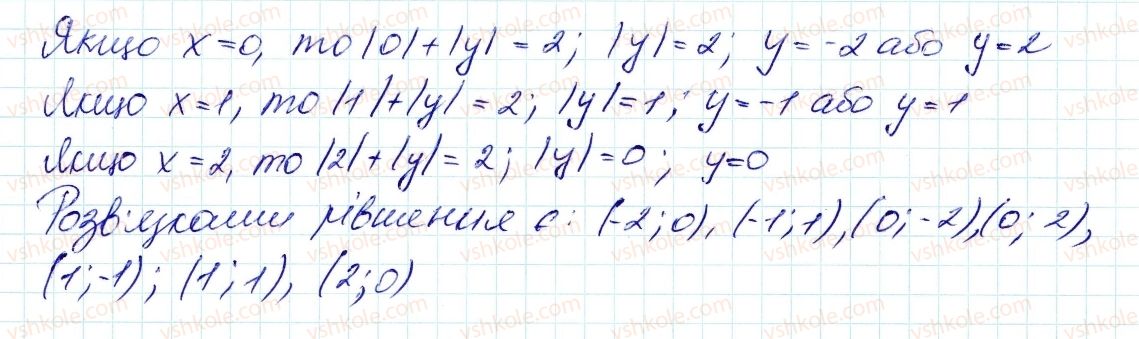 Якщо x=0, то |0|+|y|=2; |y|=2; y=-2 або y=2
Якщо x=1, то |1|+|y|=2; |y|=1; y=-1 або y=1
Якщо x=2, то |2|+|y|=2; |y|=0; y=0
Розв'язками рівняння є: (-2;0), (-1;1), (0;-2), (0;2),
(1;-1); (1;1), (2;0)